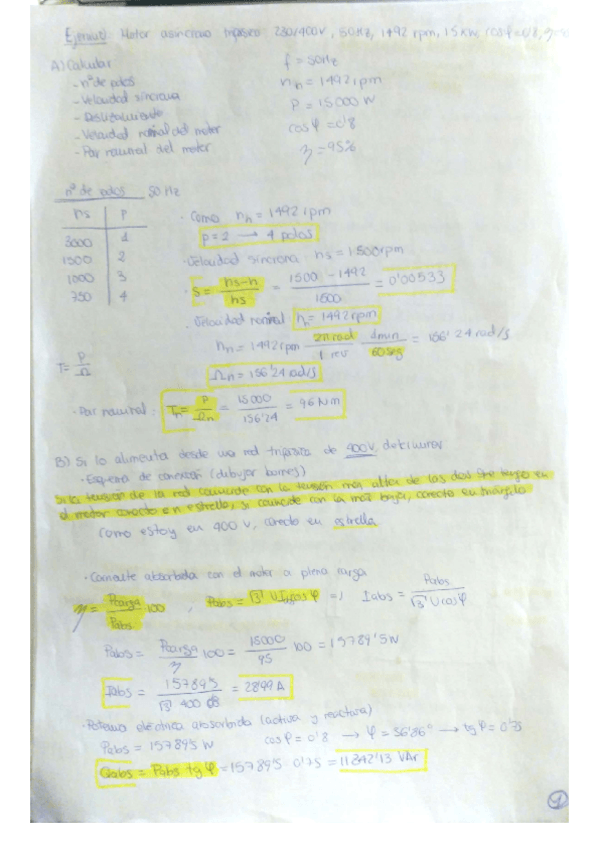 Ejercicio: Motor asíncrono trifásico 230/400V, 50Hz, 1492 rpm, 15KW, cosφ=0'8,
A) Calcular
- nº de polos
- Velocidad síncrona
- Deslizamiento
- Velocidad nominal del motor
- Par nominal del motor
f = 50Hz
nn = 1492 rpm
P = 15000 W
cosφ = 0'8
η = 95%
nº de polos 50 Hz
ns P
3000 1
1500 2
1000 3
750 4
· Como nn = 1492 rpm
p=2 → 4 polos
· Velocidad síncrona: ns = 1500rpm
· S = ns-n / ns = 1500 - 1492 / 1500 = 0'00533
· Velocidad nominal nn = 1492rpm
nn = 1492 rpm 2π rad / 1 rev 1min / 60seg = 156'24 rad/s
Ωn = 156'24 rad/s
T = P / Ω
· Par nominal: Tn = P / Ωn = 15000 / 156'24 = 96 Nm
B) Si lo alimenta desde una red trifásica de 400V, determinar
· Esquema de conexión (dibujar bornes)
Si la tensión de la red coincide con la tensión más alta de las dos que tengo en
el motor conecto en estrella, si coincide con la más baja, conecto en triángulo
Como estoy en 400 V, conecto en estrella
· Corriente absorbida con el motor a plena carga
η = Pcarga / Pabs · 100 , Pabs = √3 U I cosφ =) Iabs = Pabs / √3 U cosφ
Pabs = Pcarga / η 100 = 15000 / 95 100 = 15789'5W
Iabs = 15789'5 / √3 400 0'8 = 28'49 A
· Potencia eléctrica absorbida (activa y reactiva)
Pabs = 15789'5 W cosφ = 0'8 → φ = 36'86° → tgφ = 0'75
Qabs = Pabs tg φ = 15789'5 · 0'75 = 11842'13 VAr
1